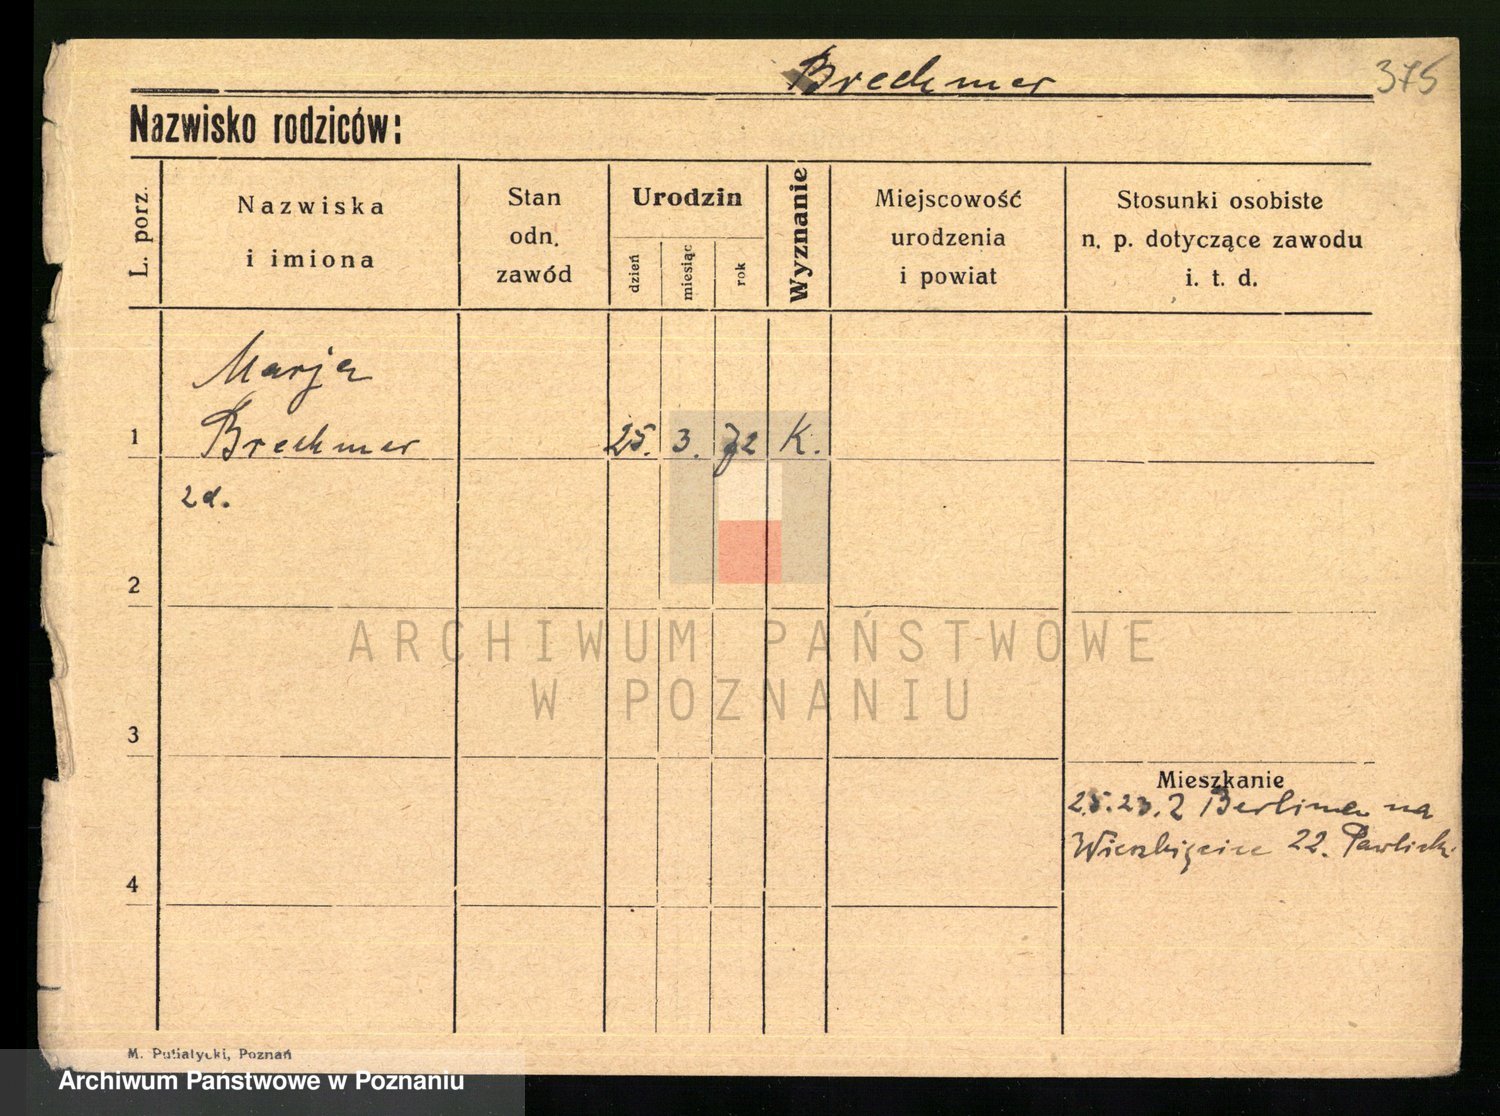 Brechmer
375
Nazwisko rodziców:
L. porz.
Nazwiska
i imiona
Stan
odn.
zawód
Urodzin
dzień
miesiąc
rok
Wyznanie
Miejscowość
urodzenia
i powiat
Stosunki osobiste
n. p. dotyczące zawodu
i. t. d.
Marja
1 Brechmer 25. 3. 72 K.
2
3
Mieszkanie
25.23. Z Berlina na
22.
4
ARCHIWUM PAŃSTWOWE
W POZNANIU
M. Putiatycki, Poznań
Archiwum Państwowe w Poznaniu